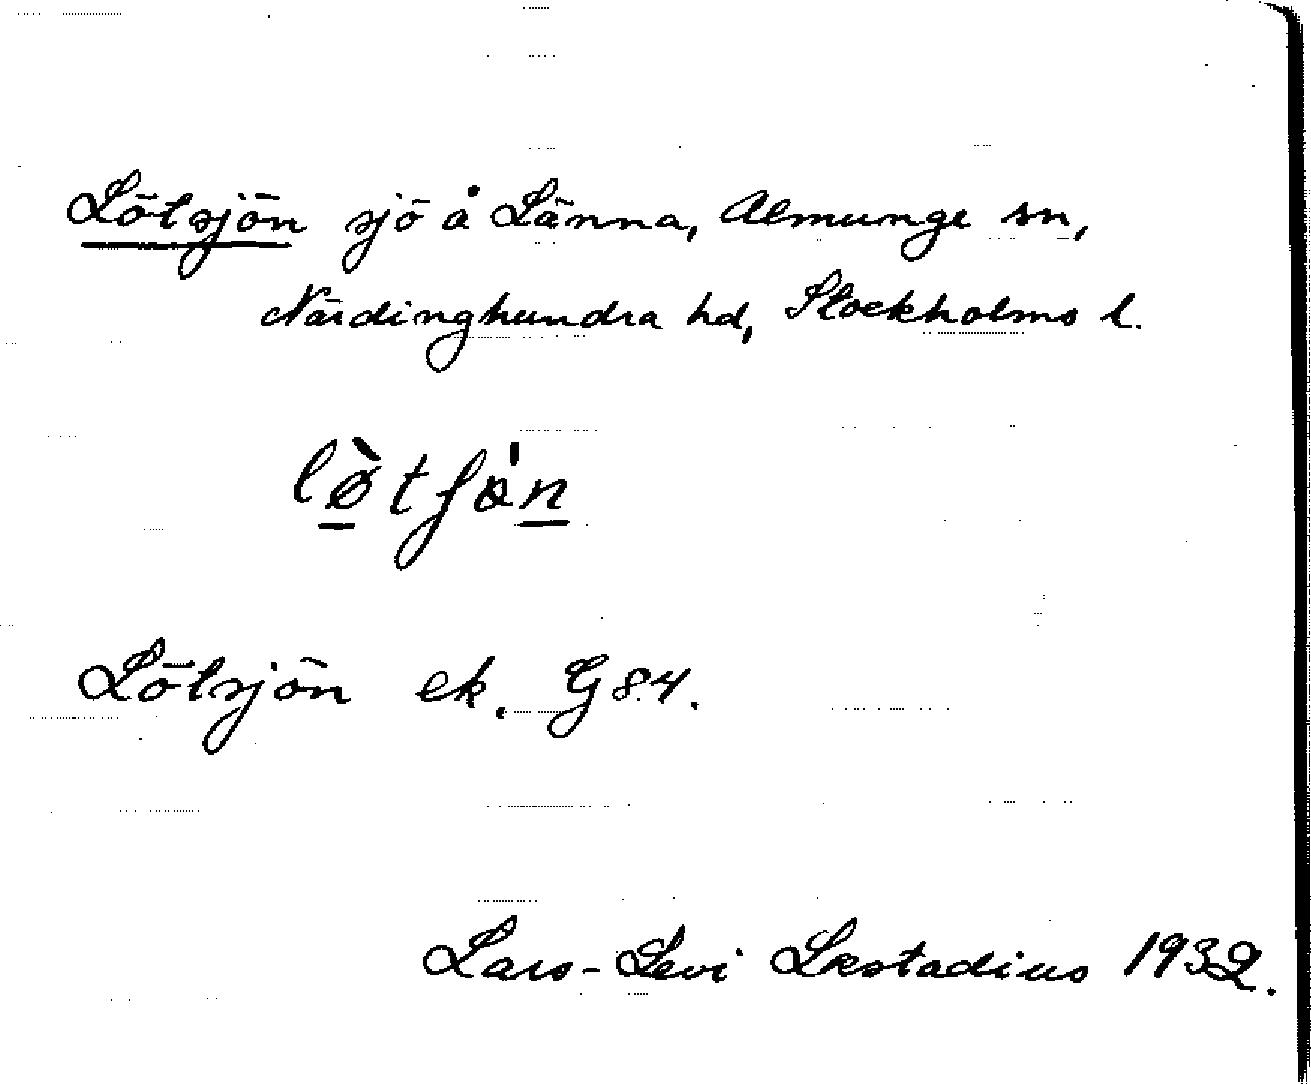 Lötsjön sjö å Länna, Almunge sn,
Närdinghundra hd, Stockholms l.
lø̀tʃø̍n
Lötsjön ek. G 84.
Lars-Levi Læstadius 1932.